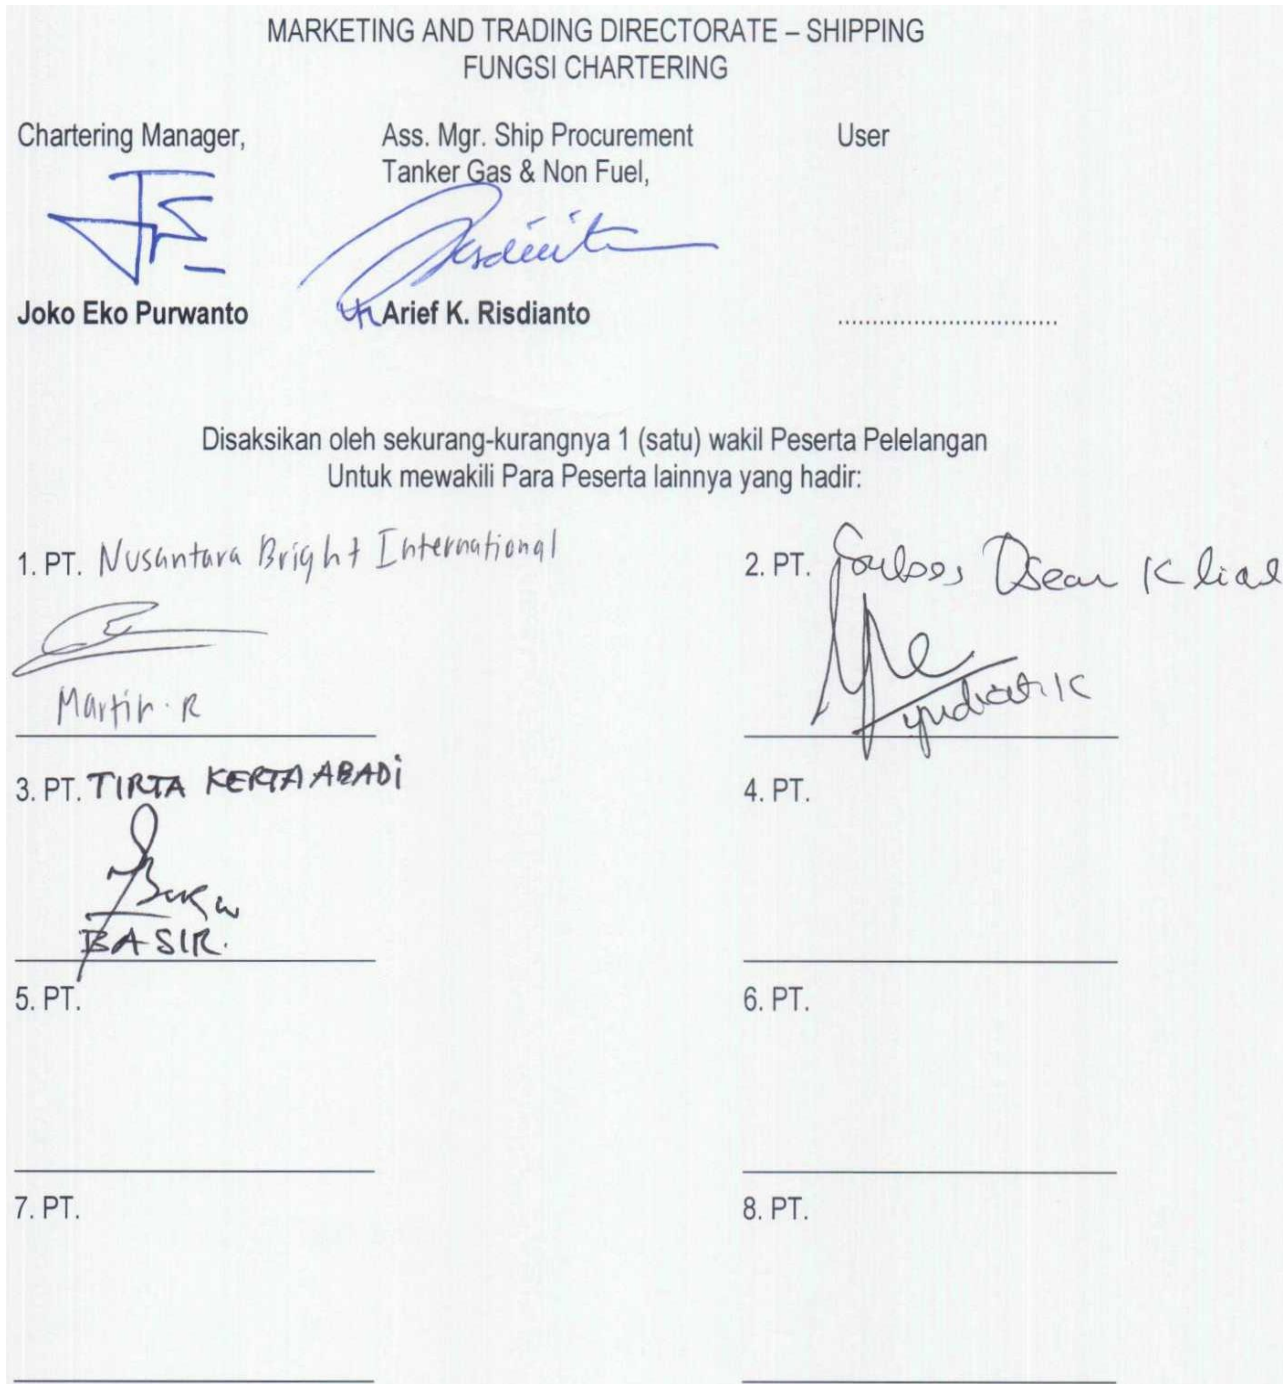 MARKETING AND TRADING DIRECTORATE – SHIPPING
FUNGSI CHARTERING
Chartering Manager,
Ass. Mgr. Ship Procurement
Tanker Gas & Non Fuel,
User
Joko Eko Purwanto
Arief K. Risdianto
...............................
Disaksikan oleh sekurang-kurangnya 1 (satu) wakil Peserta Pelelangan
Untuk mewakili Para Peserta lainnya yang hadir:
1. PT. Nusantara Bright International
Martin. R
2. PT.
3. PT. TIRTA KERTA ABADi
BASIR.
4. PT.
5. PT.
6. PT.
7. PT.
8. PT.